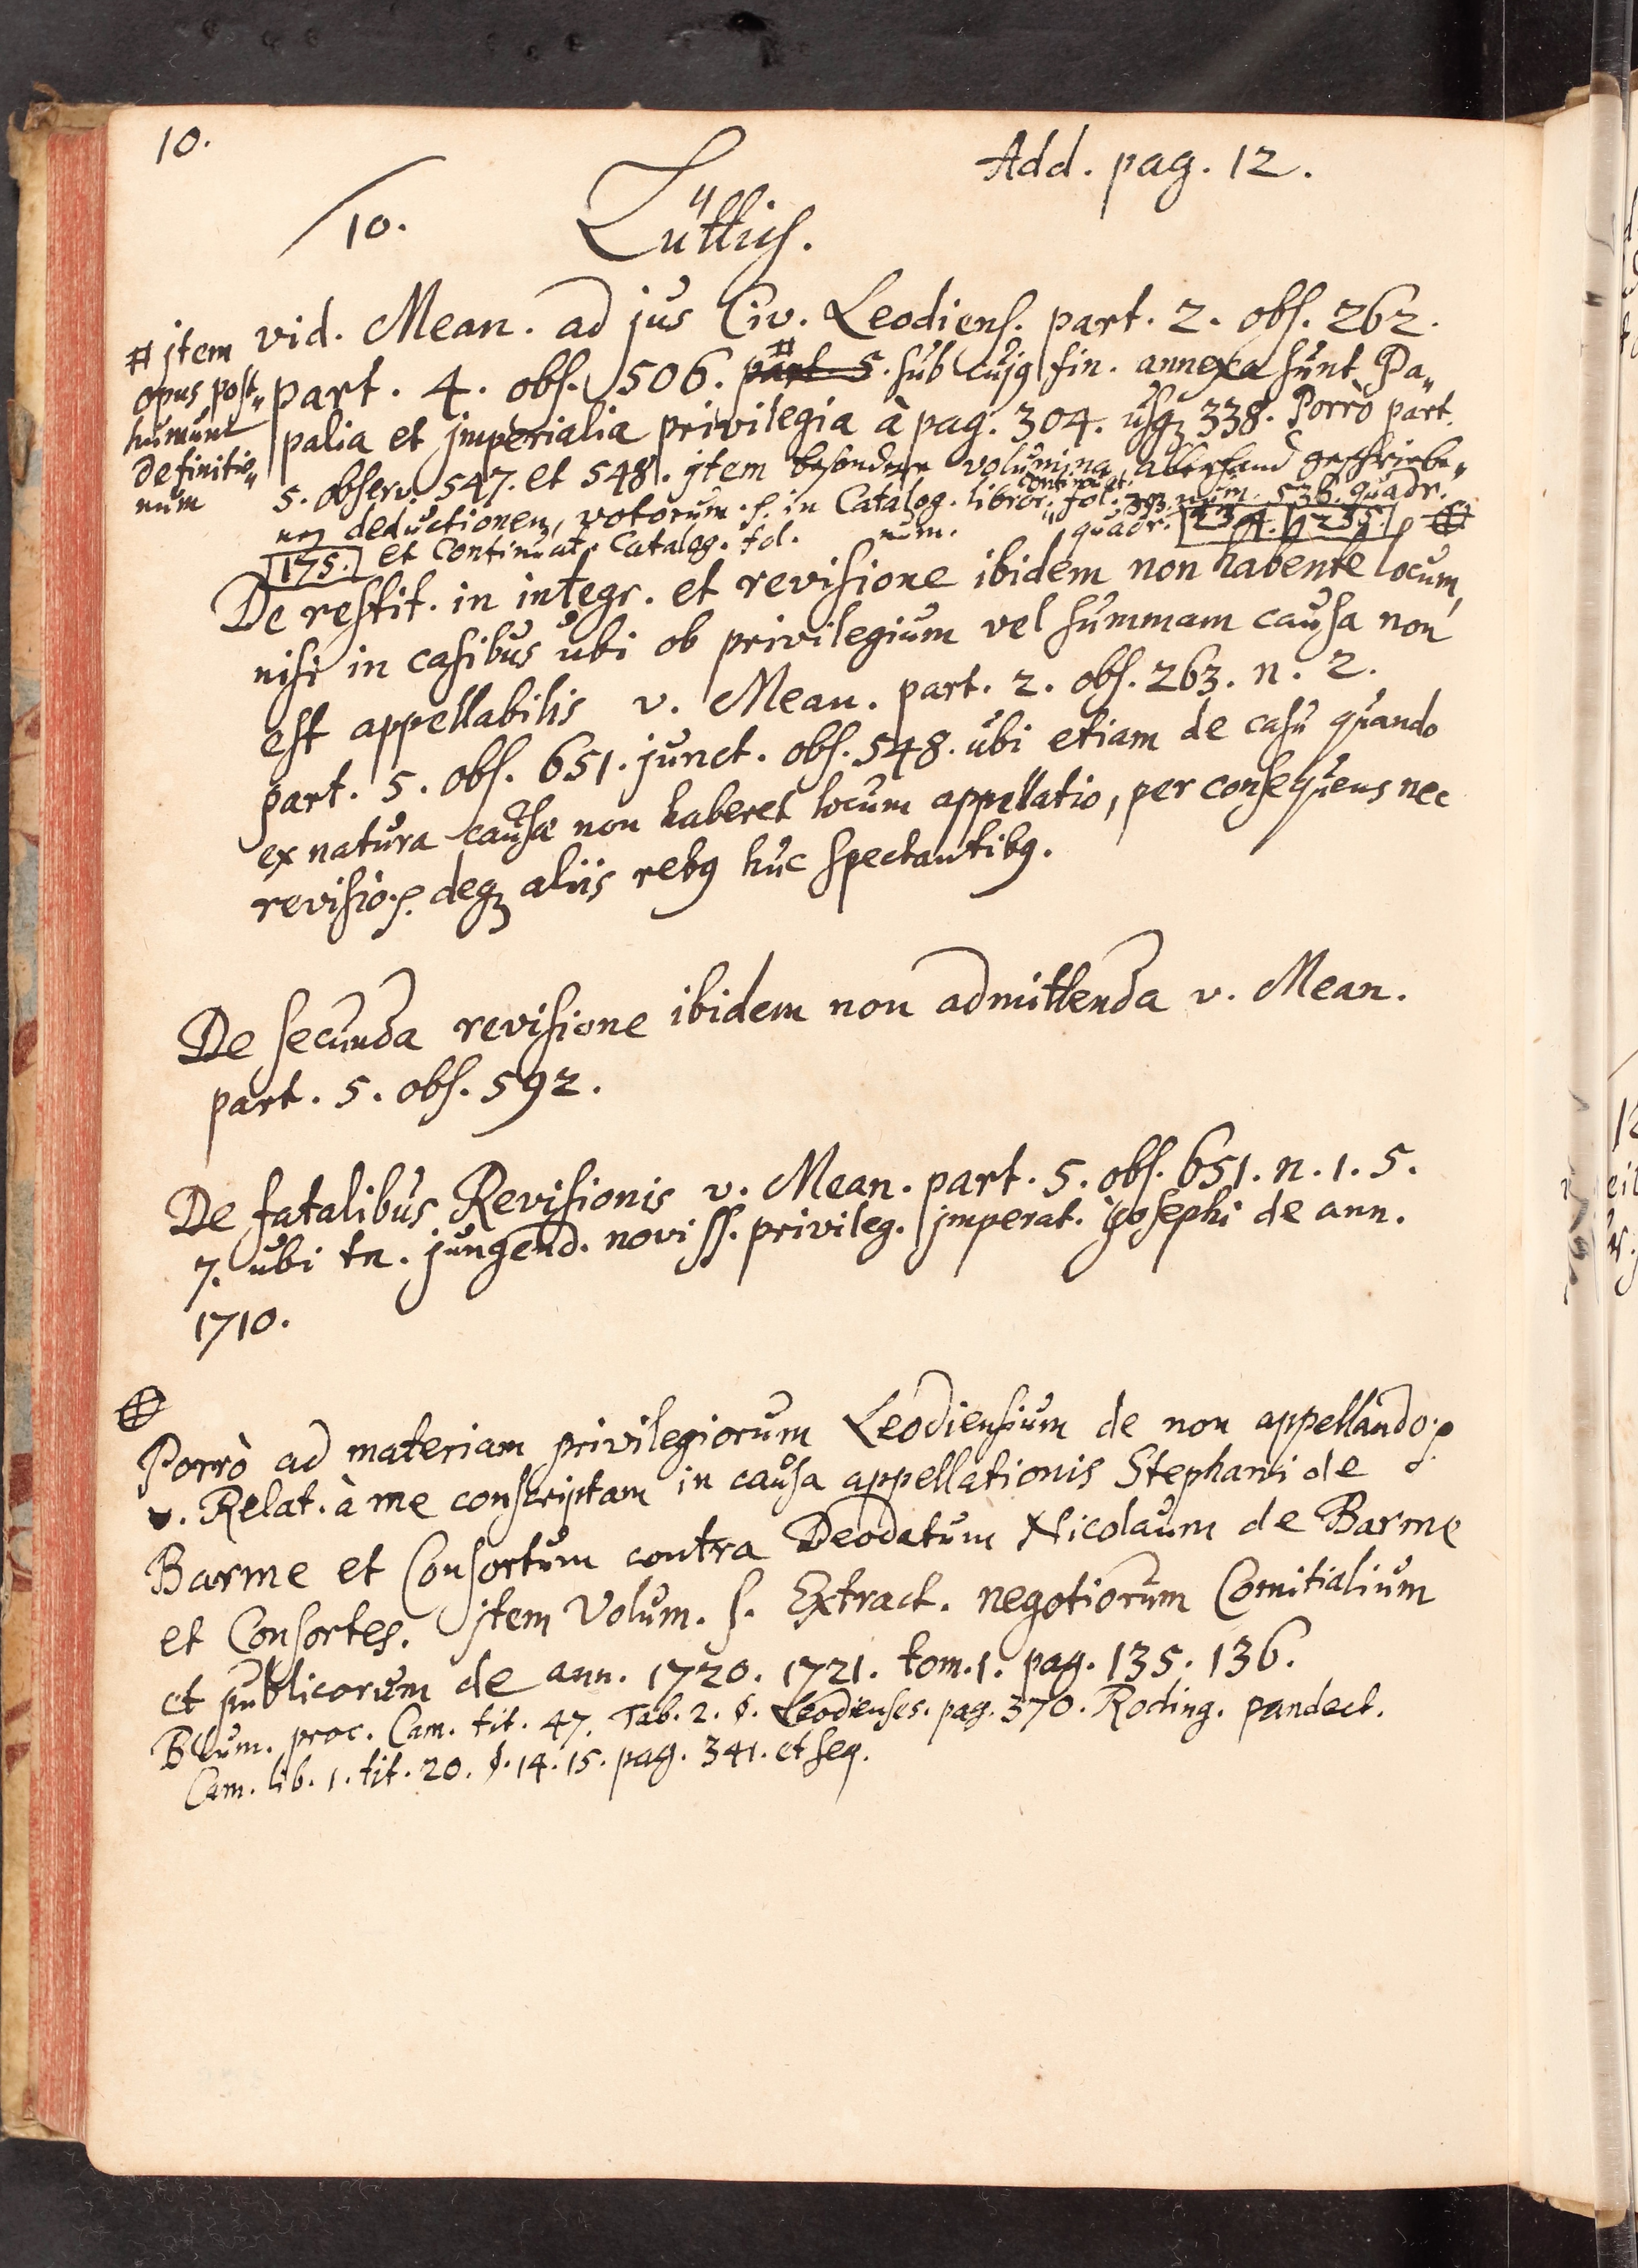 10.
Add. pag. 12.
10. Lüttich.
# jtem
opus post„
humum
definitio„
num
vid. Mean. ad jus Civ. Leodiens. part. 2. obs. 262.
part. 4. obs. 506. part. 5. # sub cujq fin. annexa sunt Pa„
palia et jmperialia privilegia à pag. 304. usqz 338. Porrò part.
5. observ. 547. et 548. jtem besondere volumina, allerhand geschriebe„
ner deductionen, votorum in Catalog. libror. continuat. fol. 393. num. 536. quadr.
175. et Continuat. Catalog. fol. num. quadr. 234. 235.
De restit. in integr. et revisione ibidem non habente locum,
nisi in casibus ubi ob privilegium vel summam causa non
est appellabilis v. Mean. part. 2. obs. 263. n. 2.
part. 5. obs. 651. junct. obs. 548. ubi etiam de casu quando
ex natura causæ non haberet locum appellatio, per consequens nec
revisio. deqz aliis rebq huc spectantibq.
De secunda revisione ibidem non admittenda v. Mean.
part. 5. obs. 592.
De fatalibus Revisionis v. Mean. part. 5. obs. 651. n. 1. 5.
7. ubi tn. jungend. noviss. privileg. jmperat. Josephi de ann.
1710.
Porrò ad materiam privilegiorum Leodiensium de non appellando
v. Relat. à me conscriptam in causa appellationis Stephani de
Barme et Consortum contra Deodatum Nicolaum de Barme
et Consortes. jtem Volum. s. Extract. negotiorum Comitialium
et publicorum de ann. 1720. 1721. tom. 1. pag. 135. 136.
Blum. proc. Cam. tit. 47. Tab. 2. §. Leodienses. pag. 370. Roding. pandect.
Cam. lib. 1. tit. 20. §. 14. 15. pag. 341. et seq.